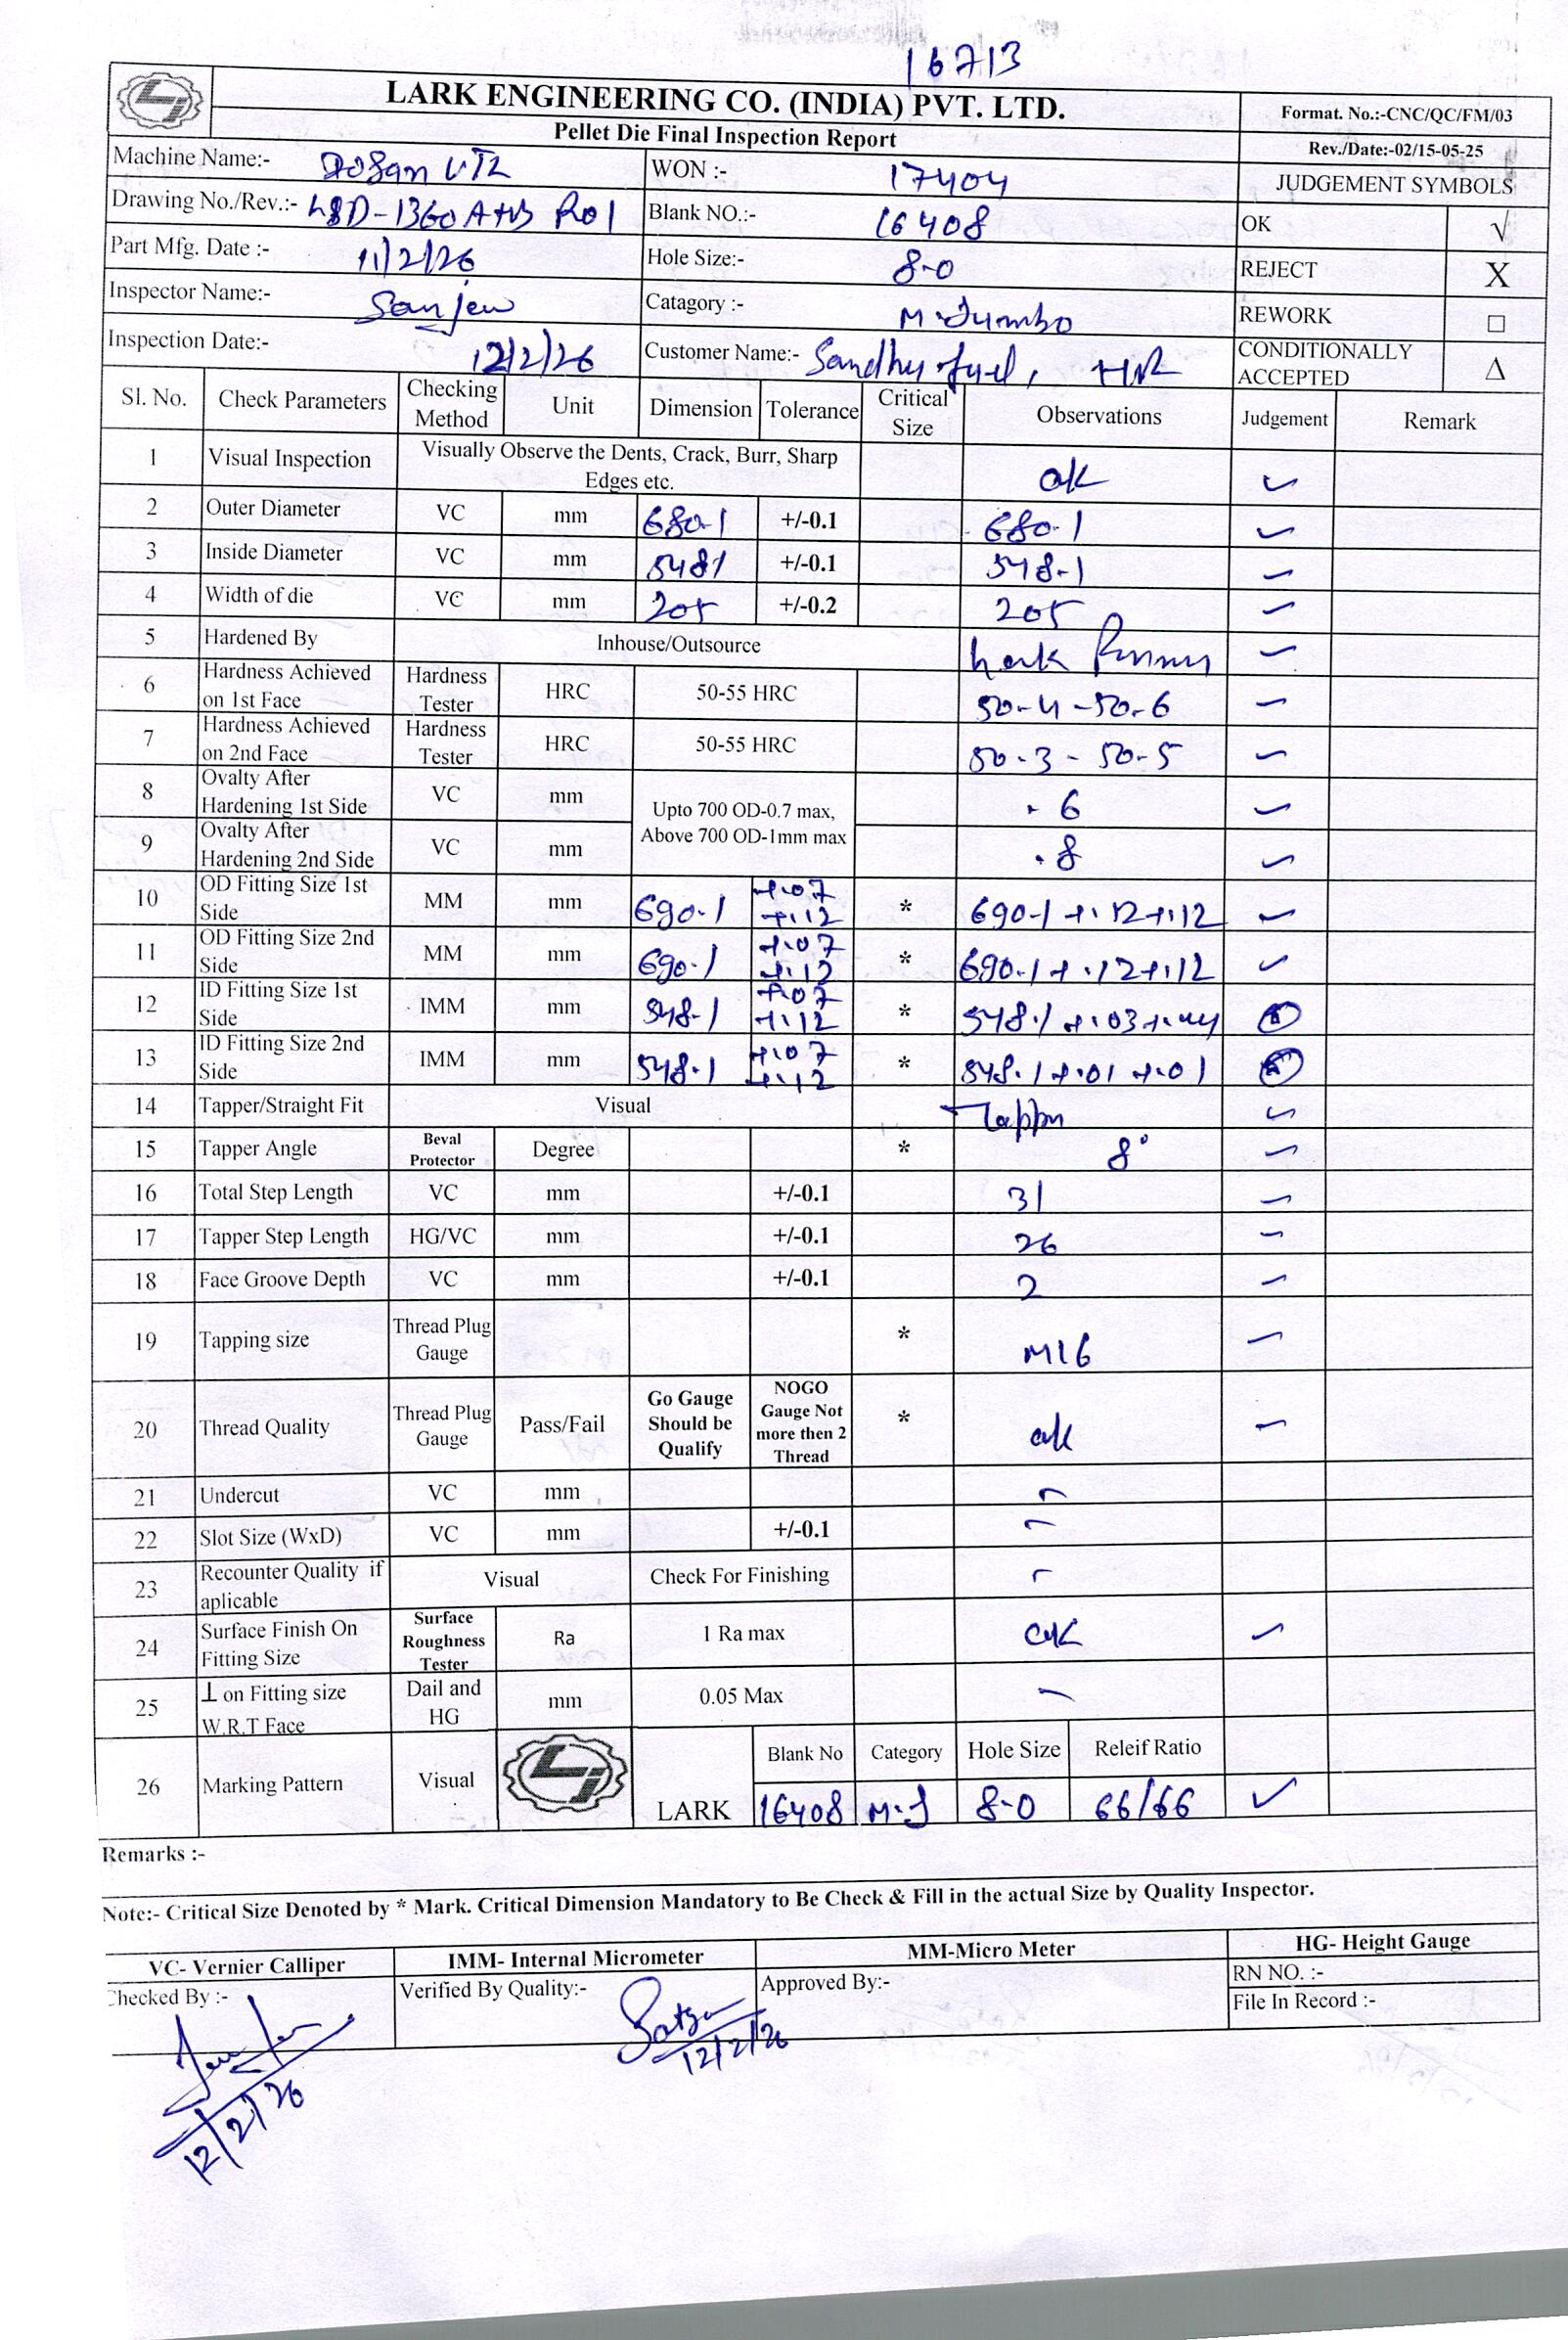 16713
LARK ENGINEERING CO. (INDIA) PVT. LTD.
Format. No.:-CNC/QC/FM/03
Pellet Die Final Inspection Report
Rev./Date:-02/15-05-25
Machine Name:- VTL WON :- 17404 JUDGEMENT SYMBOLS
Drawing No./Rev.:- LSD-1360 A+B R01 Blank NO.:- 16408 OK √
Part Mfg. Date :- 11/2/26 Hole Size:- 8-0 REJECT X
Inspector Name:- Sanjeev Catagory :- M.Jumbo REWORK □
Inspection Date:- 12/2/26 Customer Name:- Sandhu fuel, CONDITIONALLY ACCEPTED Δ
Sl. No. Check Parameters Checking Method Unit Dimension Tolerance Critical Size Observations Judgement Remark
1 Visual Inspection Visually Observe the Dents, Crack, Burr, Sharp Edges etc. ok ✓
2 Outer Diameter VC mm 680.1 +/-0.1 680.1 ✓
3 Inside Diameter VC mm 5481 +/-0.1 548.1 ✓
4 Width of die VC mm 205 +/-0.2 205 ✓
5 Hardened By Inhouse/Outsource Lark ✓
6 Hardness Achieved on 1st Face Hardness Tester HRC 50-55 HRC 50.4-50.6 ✓
7 Hardness Achieved on 2nd Face Hardness Tester HRC 50-55 HRC 50.3-50.5 ✓
8 Ovalty After Hardening 1st Side VC mm Upto 700 OD-0.7 max, Above 700 OD-1mm max .6 ✓
9 Ovalty After Hardening 2nd Side VC mm .8 ✓
10 OD Fitting Size 1st Side MM mm 690.1 +.07 +.12 * 690.1 +.12+.12 ✓
11 OD Fitting Size 2nd Side MM mm 690.1 +.07 +.12 * 690.1 +.12+.12 ✓
12 ID Fitting Size 1st Side IMM mm 548.1 +.07 +.12 * 548.1 +.03+.04
13 ID Fitting Size 2nd Side IMM mm 548.1 +.07 +.12 * 548.1 +.01 +.01
14 Tapper/Straight Fit Visual Tapper ✓
15 Tapper Angle Beval Protector Degree * 8° ✓
16 Total Step Length VC mm +/-0.1 31 ✓
17 Tapper Step Length HG/VC mm +/-0.1 26 ✓
18 Face Groove Depth VC mm +/-0.1 2 ✓
19 Tapping size Thread Plug Gauge * M16 ✓
20 Thread Quality Thread Plug Gauge Pass/Fail Go Gauge Should be Qualify NOGO Gauge Not more then 2 Thread * ok ✓
21 Undercut VC mm -
22 Slot Size (WxD) VC mm +/-0.1 -
23 Recounter Quality if aplicable Visual Check For Finishing -
24 Surface Finish On Fitting Size Surface Roughness Tester Ra 1 Ra max ok ✓
25 ⊥ on Fitting size W.R.T Face Dail and HG mm 0.05 Max -
26 Marking Pattern Visual LARK Blank No Category Hole Size Releif Ratio
16408 M.J 8-0 66/66 ✓
Remarks :-
Note:- Critical Size Denoted by * Mark. Critical Dimension Mandatory to Be Check & Fill in the actual Size by Quality Inspector.
VC- Vernier Calliper IMM- Internal Micrometer MM-Micro Meter HG- Height Gauge
Checked By :- Verified By Quality:- Approved By:- RN NO. :-
File In Record :-
12/2/26
12/2/26